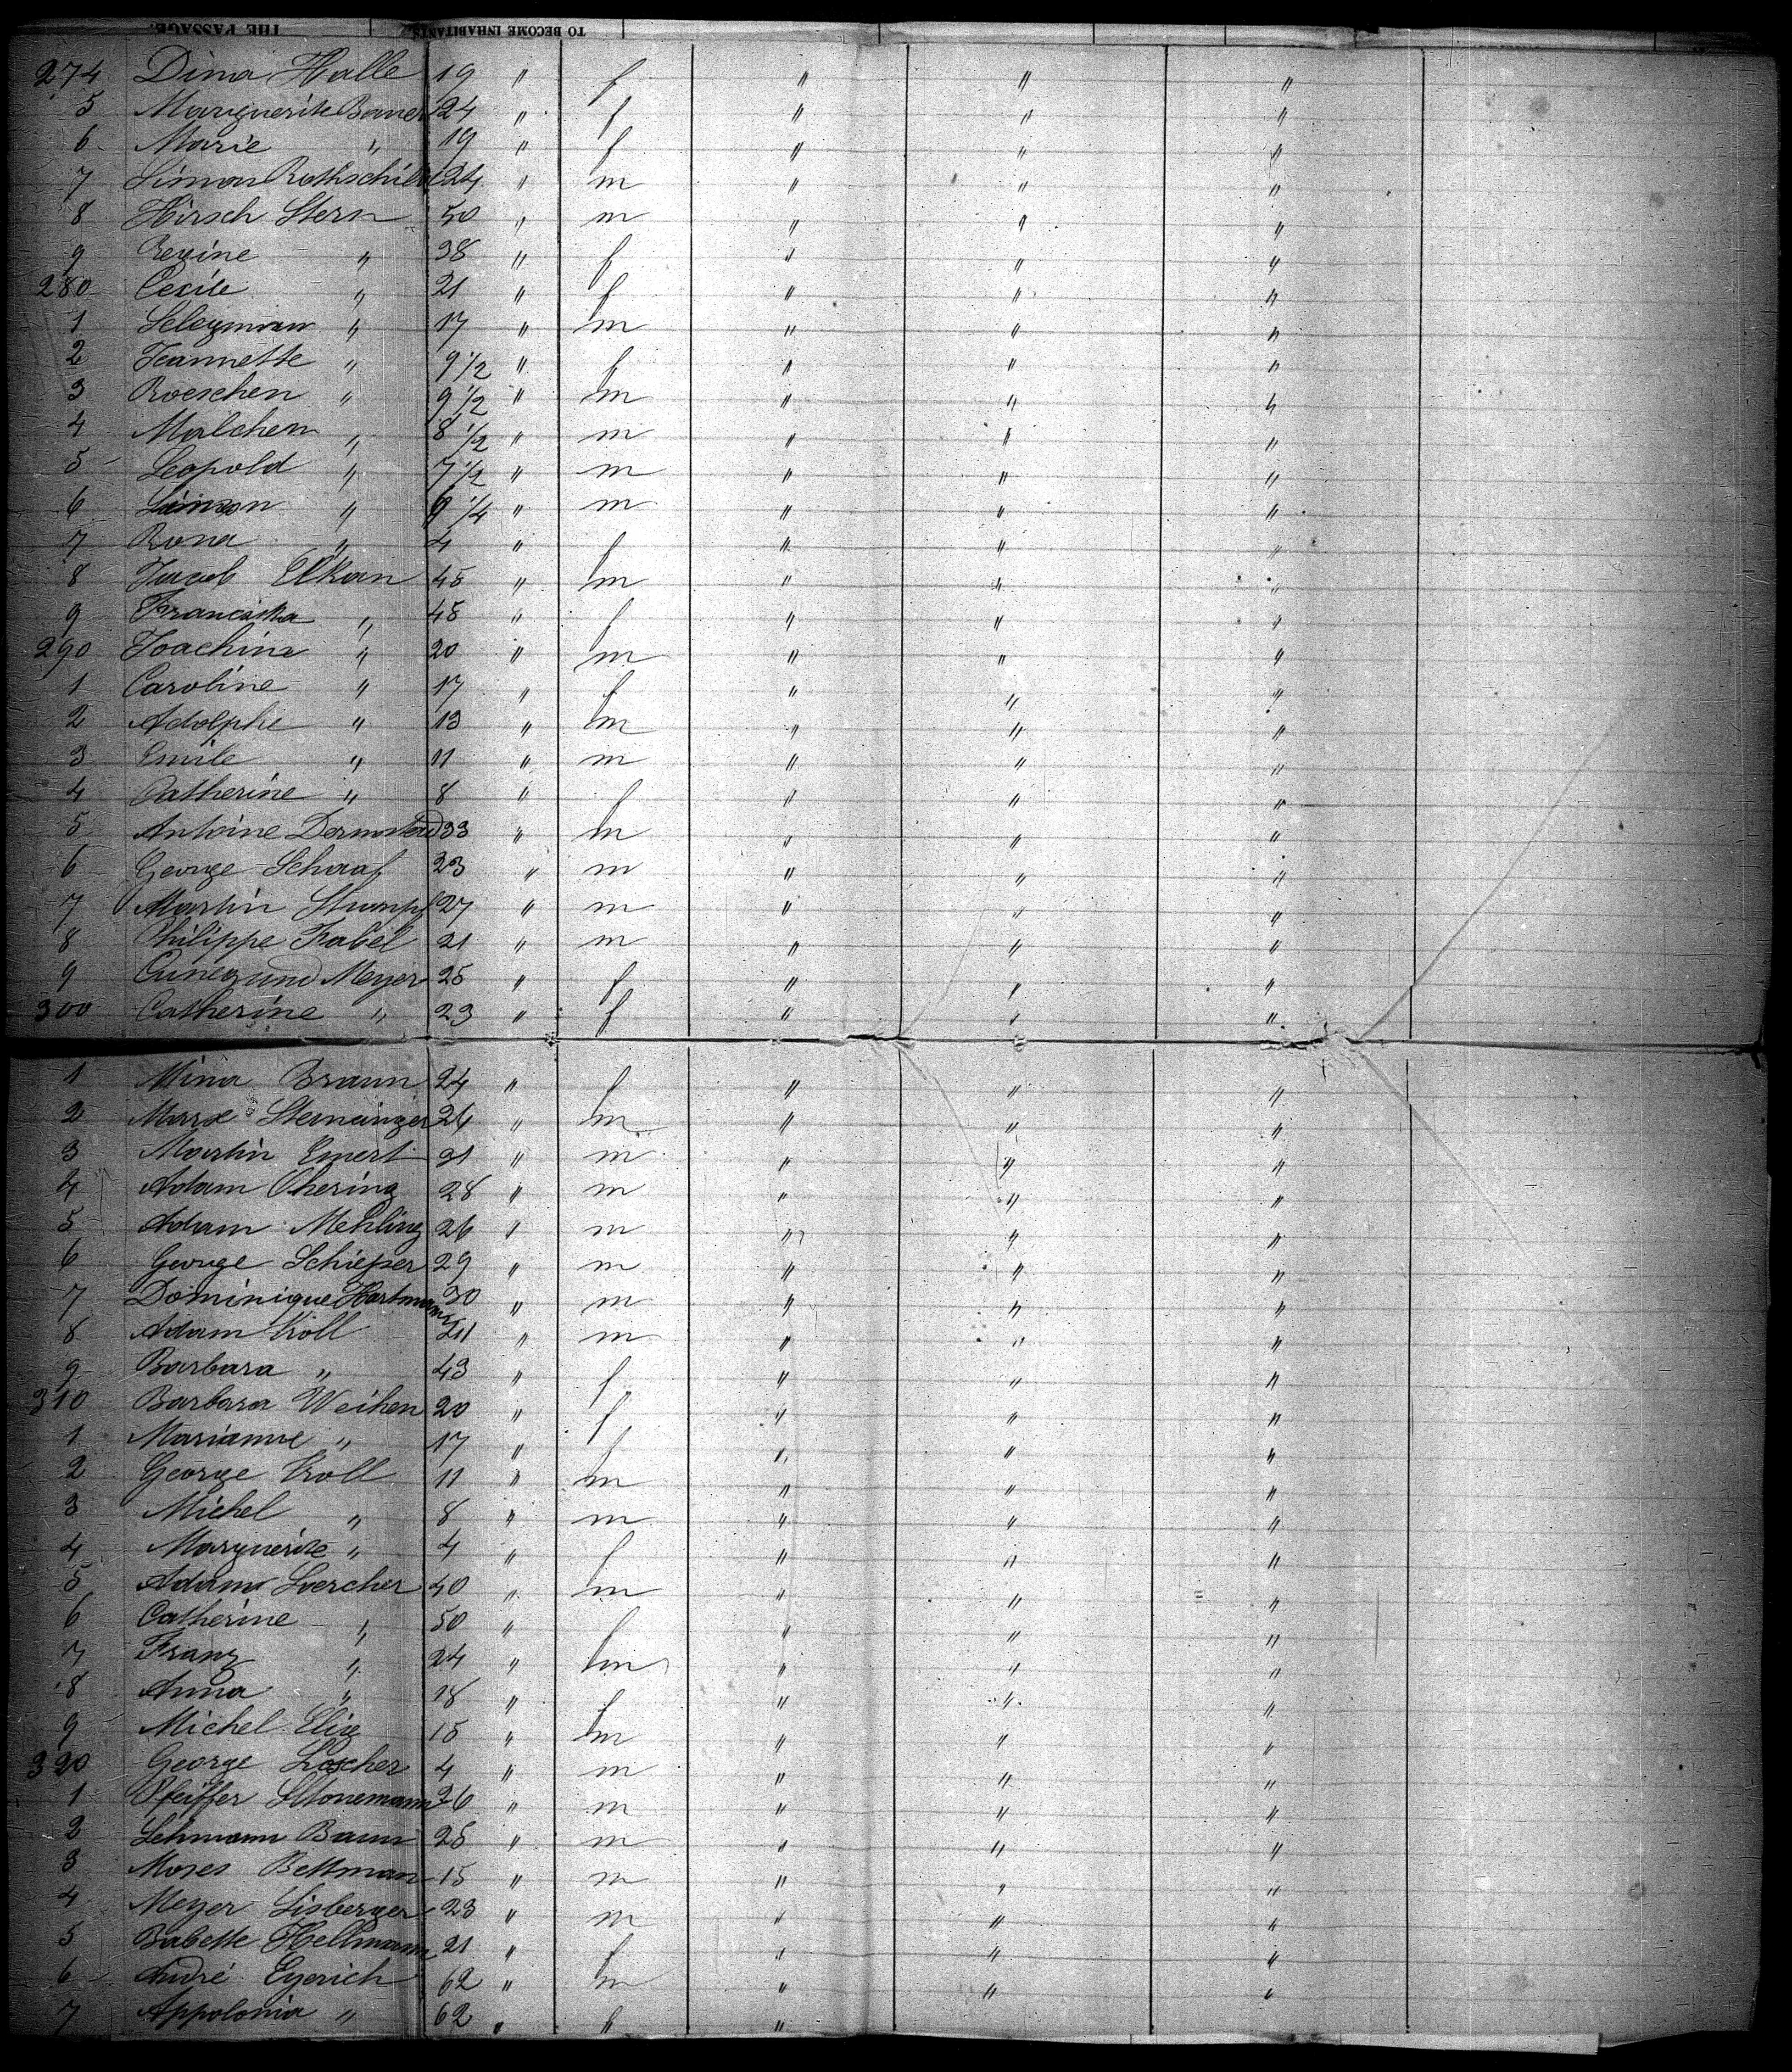 THE PASSAGE. TO BECOME INHABITANTS.
274 Dina Halle 19 " f " " "
5 Marguerite Bauer 24 " f " " "
6 Marie " 19 " f " " "
7 Simon Rothschild 24 " m " " "
8 Hirsch Stern 50 " m " " "
9 Regine " 38 " f " " "
280 Cecile " 21 " f " " "
1 " 17 " m " " "
2 Jeannette " 9 1/2 " f " " "
3 Roeschen " 9 1/2 " m " " "
4 Malchen " 8 1/2 " m " " "
5 Leopold " 7 1/2 " m " " "
6 Simon " 1/4 " m " " "
7 Rosa " 4 " f " " "
8 Jacob Elkan 45 " m " " "
9 Franciska " 45 " f " " "
290 Joachim " 20 " m " " "
1 Caroline " 17 " f " " "
2 Adolphe " 13 " m " " "
3 Emile " 11 " m " " "
4 Catherine " 8 " f " " "
5 Antoine 33 " m " " "
6 George Schaaf 23 " m " " "
7 Martin Stumpf 27 " m " " "
8 Philippe Krabel 21 " m " " "
9 Cunegund Meyer 25 " f " " "
300 Catherine " 23 " f " " "
1 Mina Braun 24 " f " " "
2 Marx 24 " m " " "
3 Martin Emert 31 " m " " "
4 Adam Ehering 28 " m " " "
5 Adam Mehling 26 " m " " "
6 George Schieper 29 " m " " "
7 Dominique Hartmann 30 " m " " "
8 Adam Kroll " m " " "
9 Barbara " 43 " f " " "
310 Barbara Weihen 20 " f " " "
1 Marianne " 17 " f " " "
2 George Kroll 11 " m " " "
3 Michel " 8 " m " " "
4 Marguerite " 4 " f " " "
5 Adam Loercher 40 " m " " "
6 Catherine " 50 " f " " "
7 Franz " 24 " m " " "
8 Anna " 18 " f " " "
9 Michel 15 " m " " "
320 George 4 " m " " "
1 Pfeiffer 26 " m " " "
2 Lehmann Baum 25 " m " " "
3 Moses Bettman 15 " m " " "
4 Meyer Lisberger 23 " m " " "
5 Babette Hellmann 21 " f " " "
6 André Eyerich 62 " m " " "
7 Appolonia " 62 " f "